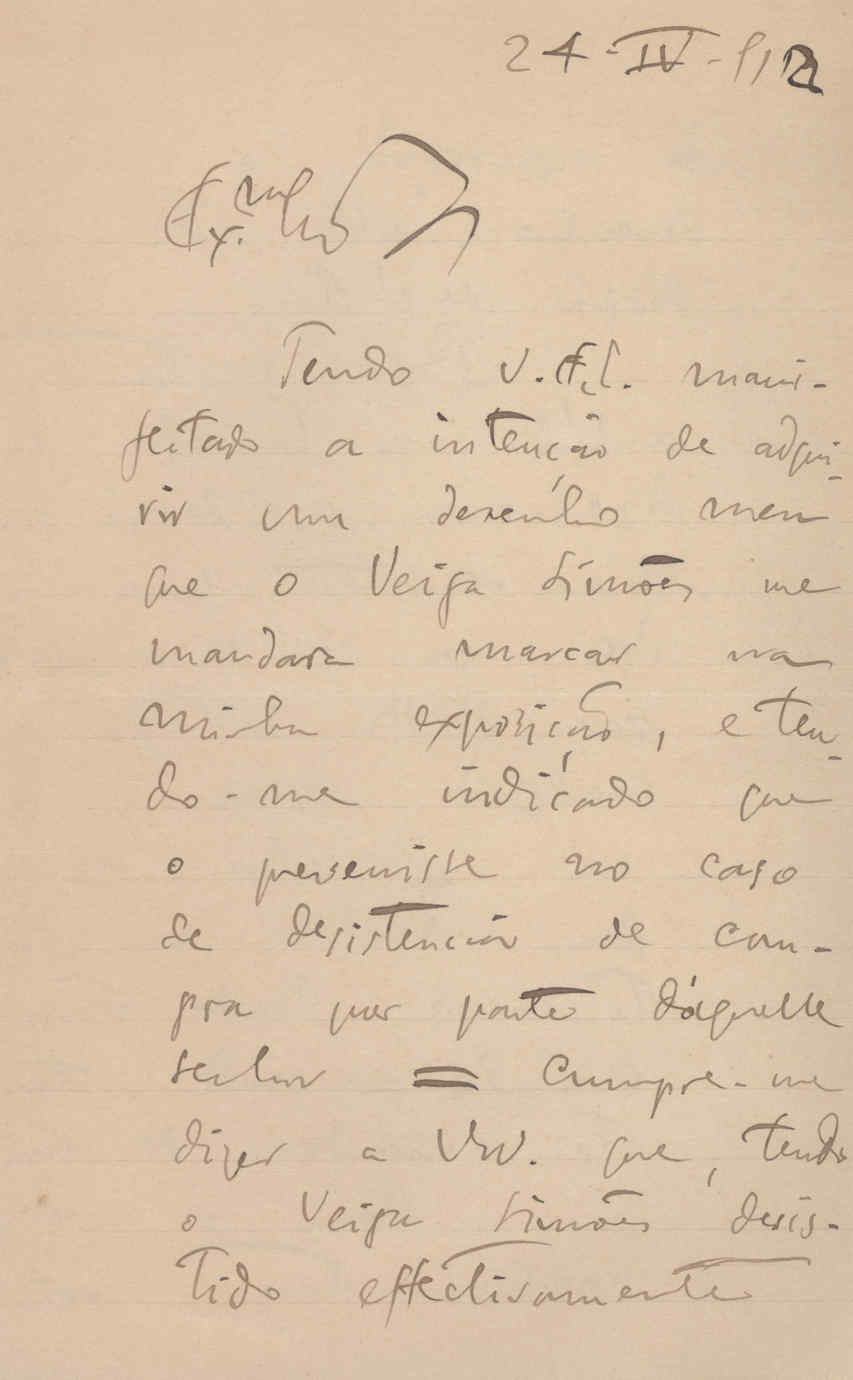 24-IV-912
Ex.mo
Tendo V. Ex. mani-
festado a intenção de adqui-
rir um desenho meu
que o Veiga Simões me
mandara marcar na
minha exposição, e ten-
do-me indicado que
o prevenisse no caso
de desistencia de com-
pra por parte d'aquelle
senhor = Cumpre-me
dizer a que, tendo
o Veiga Simões desis-
tido effectivamente